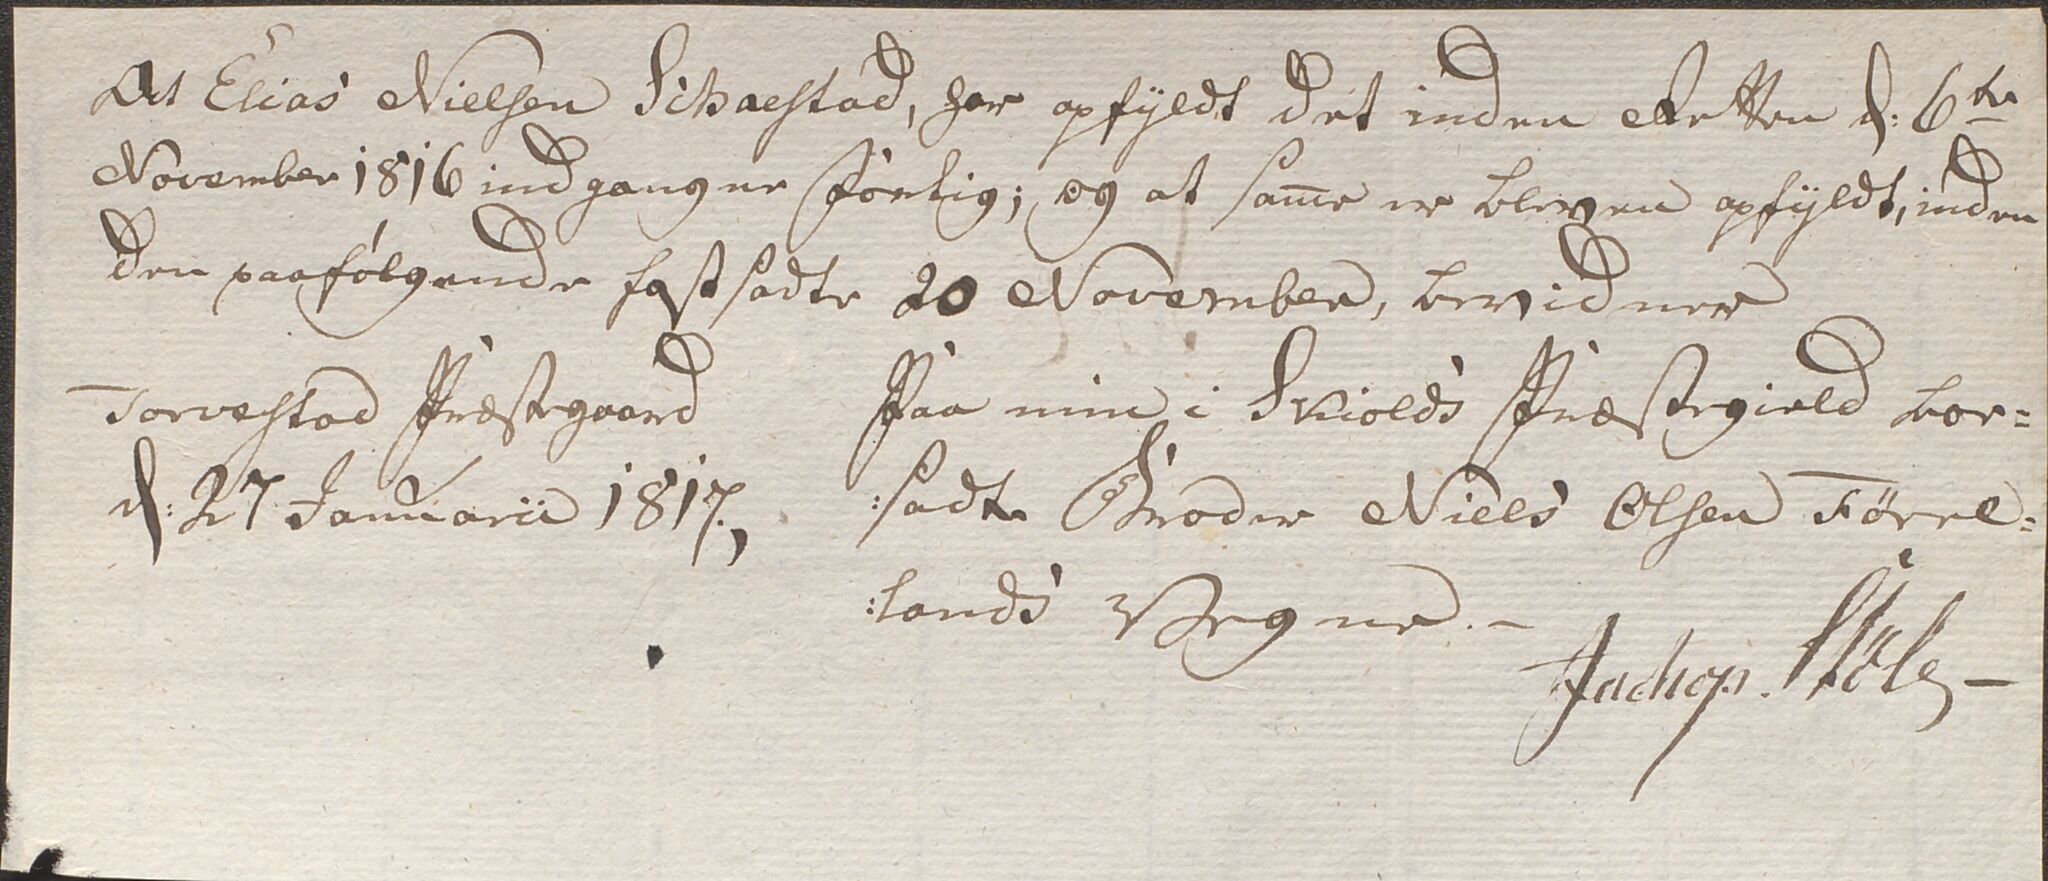 At Elias Nielsen Schaestad, har opfyldt det inden Retten d: 6te
November 1816 indgangne Forlig; og at samme er bleven opfyldt, inden
den paafølgende fastsadte 20 November, bevidner
Torvestad Præstegaard
d: 27 Januarii 1817,
Paa min i Skiolds Præstegield bor=
:sadte Broder Niels Olsen Förre=
:lands Vegne. -